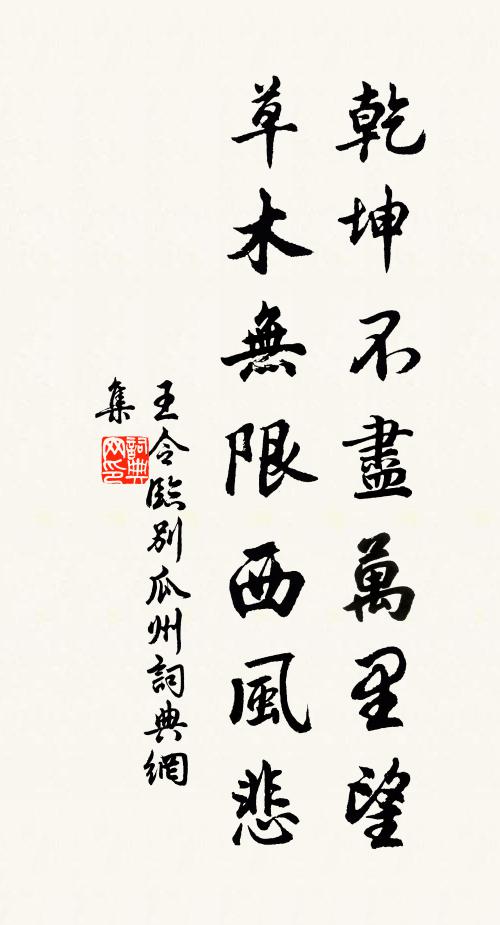 乾坤不盡萬里望
草木無限西風悲
王令臨別瓜州詞典網
集
詞典
网印